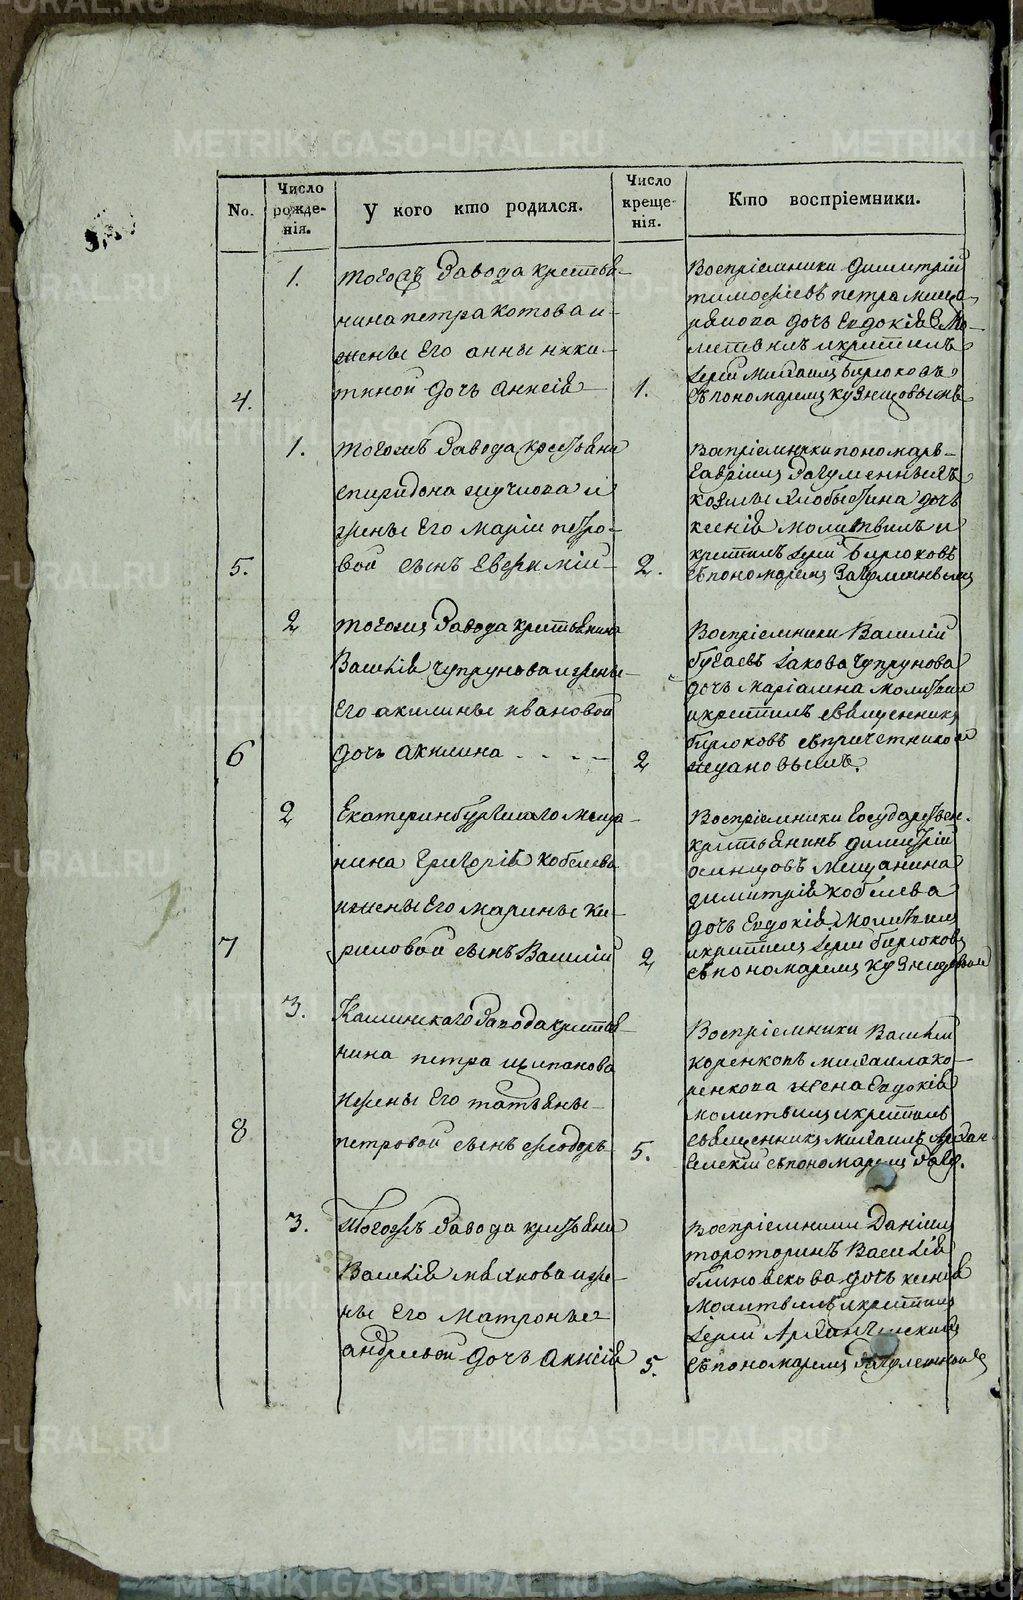 No.
Число рожде-нія.
У кого кто родился.
Число креще-нія.
Кто воспріемники.
1.
тогожъ завода крестья-
нина петра котова и
жены его анны ники-
4.
тиной дочь анисія
1.
Воспріемники димитрій
тимофіевъ петра
дочь евдокія Мо-
литвилъ и крестилъ
іерей Михаилъ Бирюковъ
съ пономаремъ кузнецовымъ
1.
тогожъ завода крестьяни
спиридона и
жены его маріи петро-
5.
вой сынъ евфимій
2.
Вопріемники пономарь
гавріилъ Загуменныхъ
козмы дочь
ксенія молитвилъ и
крестилъ іерей Бирюковъ
съ пономаремъ Загуменнымъ
2
тогожъ завода крестьянина
Василія чупрунова и жены
его акилины ивановой
6
дочь акилина - - - -
2
Воспріемники Василій
бугаевъ іакова чупрунова
дочь маріамна молитвил
и крестилъ священникъ
бирюковъ съ причетникомъ
ждановымъ.
2
Екатеринбургскаго меща-
нина григорія кобелева
и жены его марины ки-
7
риловой сынъ Василій
2
Воспріемники государствен.
крестьянинъ димитрій
осинцовъ мещанина
димитрія кобелева
дочь евдокія молитвилъ
и крестилъ іерей бирюковъ
съ пономаремъ кузнецовым
3.
Каслинскаго завода крестья-
нина петра щипанова
и жены его татьяны
8
петровой сынъ феодоръ
5.
Воспріемники Василій
коренковъ михаила ко-
ренкова жена евдокія
молитвилъ и крестилъ
священникъ михаилъ Архан-
гелскій съ пономаремъ Загу.
3.
Тогожъ завода крестьяни
Василія и же-
ны его матроны
андреевой дочь анисія
5.
Воспріемники Даніилъ
тороторинъ Василія
блиновскова дочь ксенія
молитвилъ и крестилъ
іерей Архангелский
съ пономаремъ Загуменным
METRIKI.GASO-URAL.RU